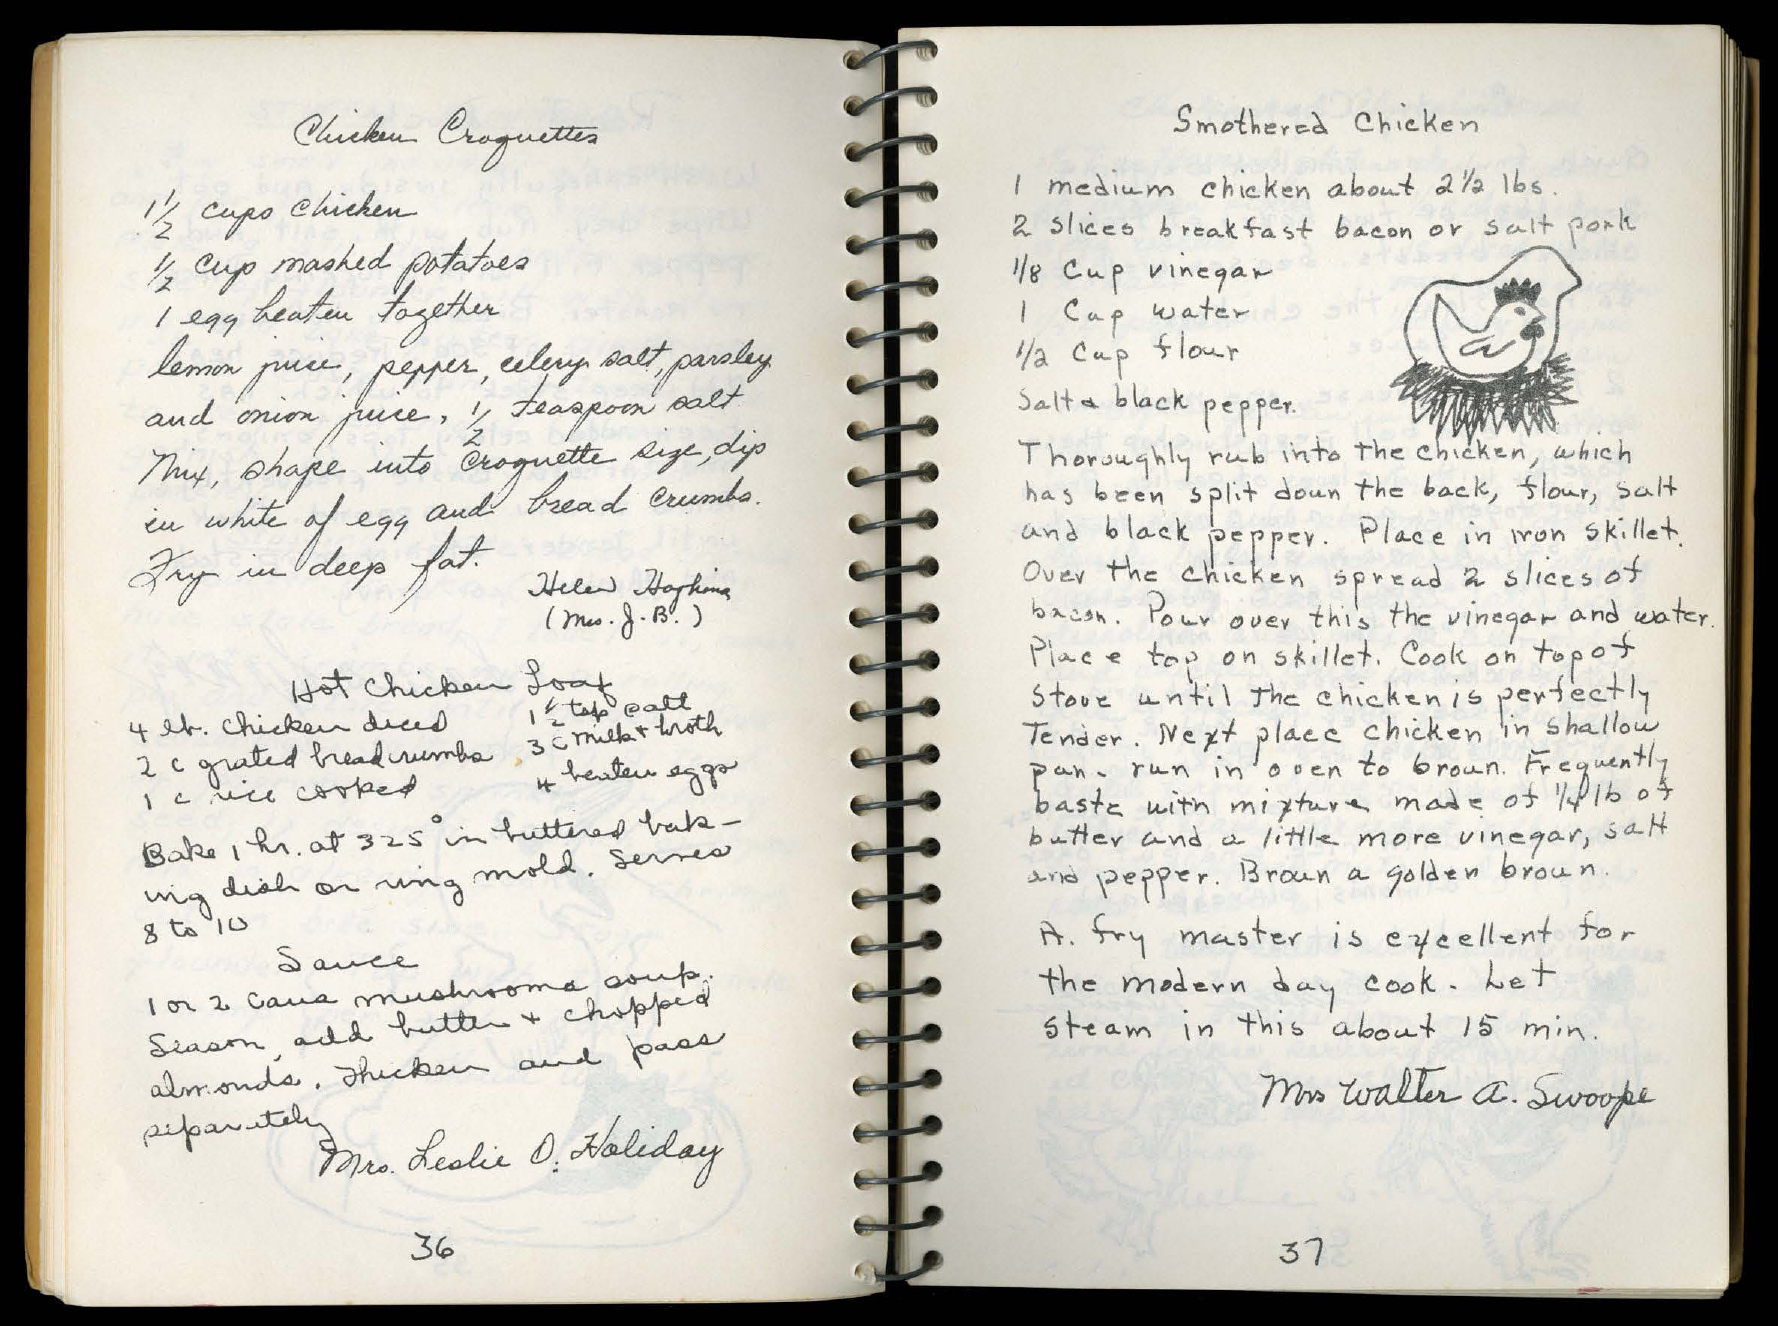 Chicken Croquettes
1 1/2 cups chicken
1/2 cup mashed potatoes
1 egg beaten together
lemon juice, pepper, celery salt, parsley
and onion juice, 1/2 teaspoon salt
Mix, shape into croquette size, dip
in white of egg and bread crumbs.
Fry in deep fat.
Helen Hopkins
(Mrs. J. B.)
Hot Chicken Loaf
4 lb. chicken diced
2 c grated breadcrumbs
1 c rice cooked
1 1/2 tsp salt
3 c milk + broth
4 beaten eggs
Bake 1 hr. at 325° in buttered bak-
ing dish or ring mold. Serves
8 to 10
Sauce
1 or 2 cans mushrooms soup.
Season, add butter + chopped
almonds. Thicken and pass
separately
Mrs. Leslie O. Holiday
36
Smothered Chicken
1 medium chicken about 2 1/2 lbs.
2 slices breakfast bacon or salt pork
1/8 Cup vinegar
1 Cup water
1/2 Cup flour
Salt & black pepper.
Thoroughly rub into the chicken, which
has been split down the back, flour, salt
and black pepper. Place in iron skillet.
Over the chicken spread 2 slices of
bacon. Pour over this the vinegar and water.
Place top on skillet. Cook on top of
Stove until the chicken is perfectly
Tender. Next place chicken in shallow
pan. run in oven to brown. Frequently
baste with mixture made of 1/4 lb of
butter and a little more vinegar, salt
and pepper. Brown a golden brown.
A. fry master is excellent for
the modern day cook. Let
steam in this about 15 min.
Mrs Walter A. Swoope
37